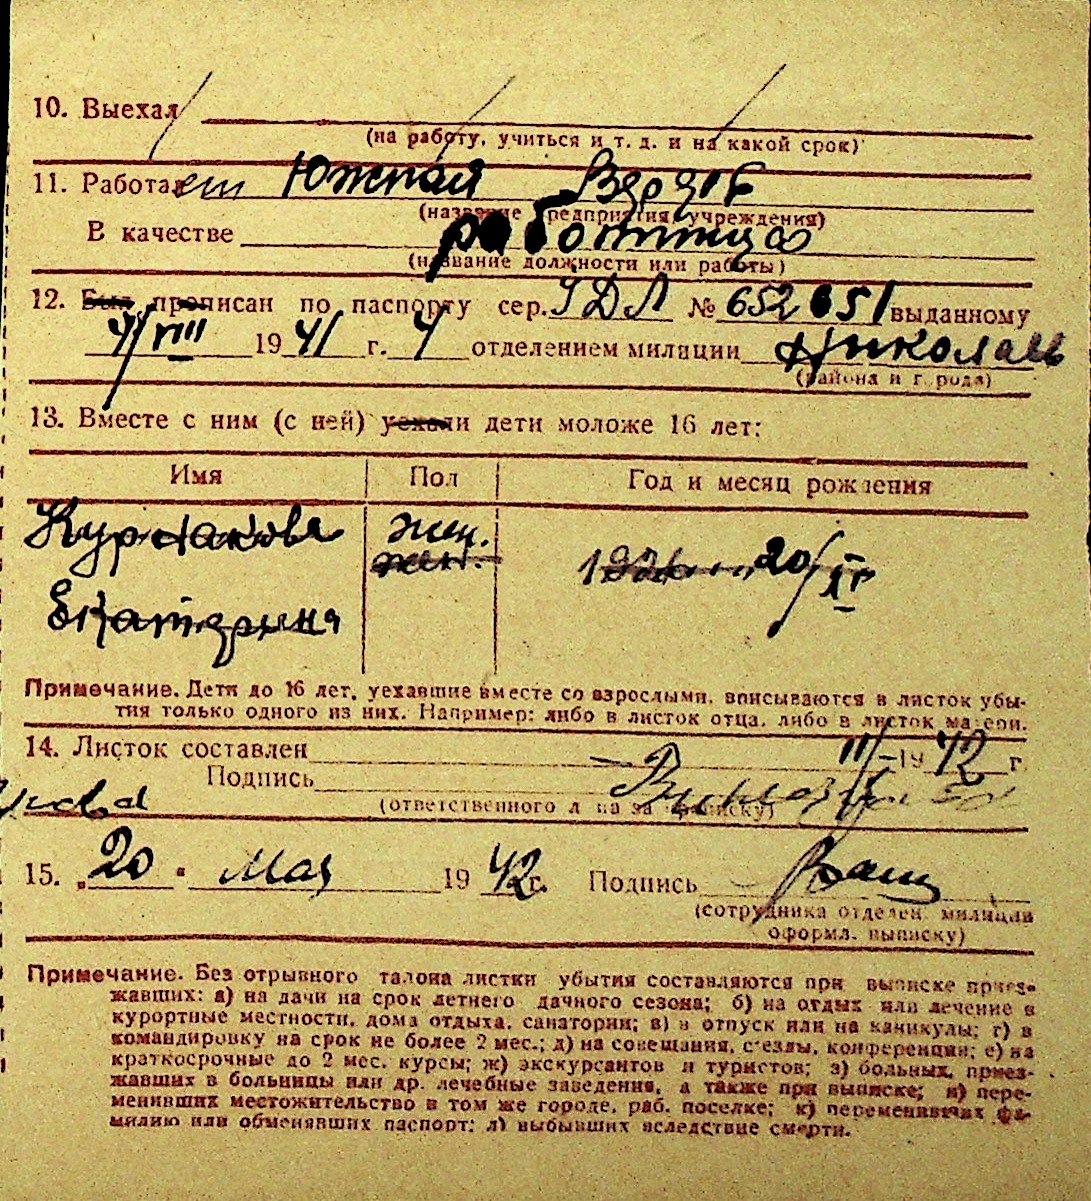 10. Выехал
(на работу, учиться и т. д. и на какой срок)
11. Работает Южная Верфь
(название предприятия, учреждения)
В качестве работница
(название должности или работы)
12. Был прописан по паспорту сер. № выданному
4/VIII 1941 г. 4 отделением милиции Николаев
(района и города)
13. Вместе с ним (с ней) уехали дети моложе 16 лет:
Имя Пол Год и месяц рождения
жен.
жен. 20/IV
Екатерина
Примечание. Дети до 16 лет, уехавшие вместе со взрослыми, вписываются в листок убы-
тия только одного из них. Например: либо в листок отца, либо в листок матери.
14. Листок составлен 1942 г.
Подпись
(ответственного лица за прописку)
15. „20" Мая 1942 г. Подпись
(сотрудника отделен. милиции
оформл. выписку)
Примечание. Без отрывного талона листки убытия составляются при выписке приез-
жавших: а) на дачи на срок летнего дачного сезона; б) на отдых или лечение в
курортные местности, дома отдыха, санатории; в) в отпуск или на каникулы; г) в
командировку на срок не более 2 мес.; д) на совещания, съезды, конференции; е) на
краткосрочные до 2 мес. курсы; ж) экскурсантов и туристов; з) больных, приез-
жавших в больницы или др. лечебные заведения, а также при выписке; и) пере-
менивших местожительство в том же городе, раб. поселке; к) переменивших фа-
милию или обменявших паспорт; л) выбывших вследствие смерти.